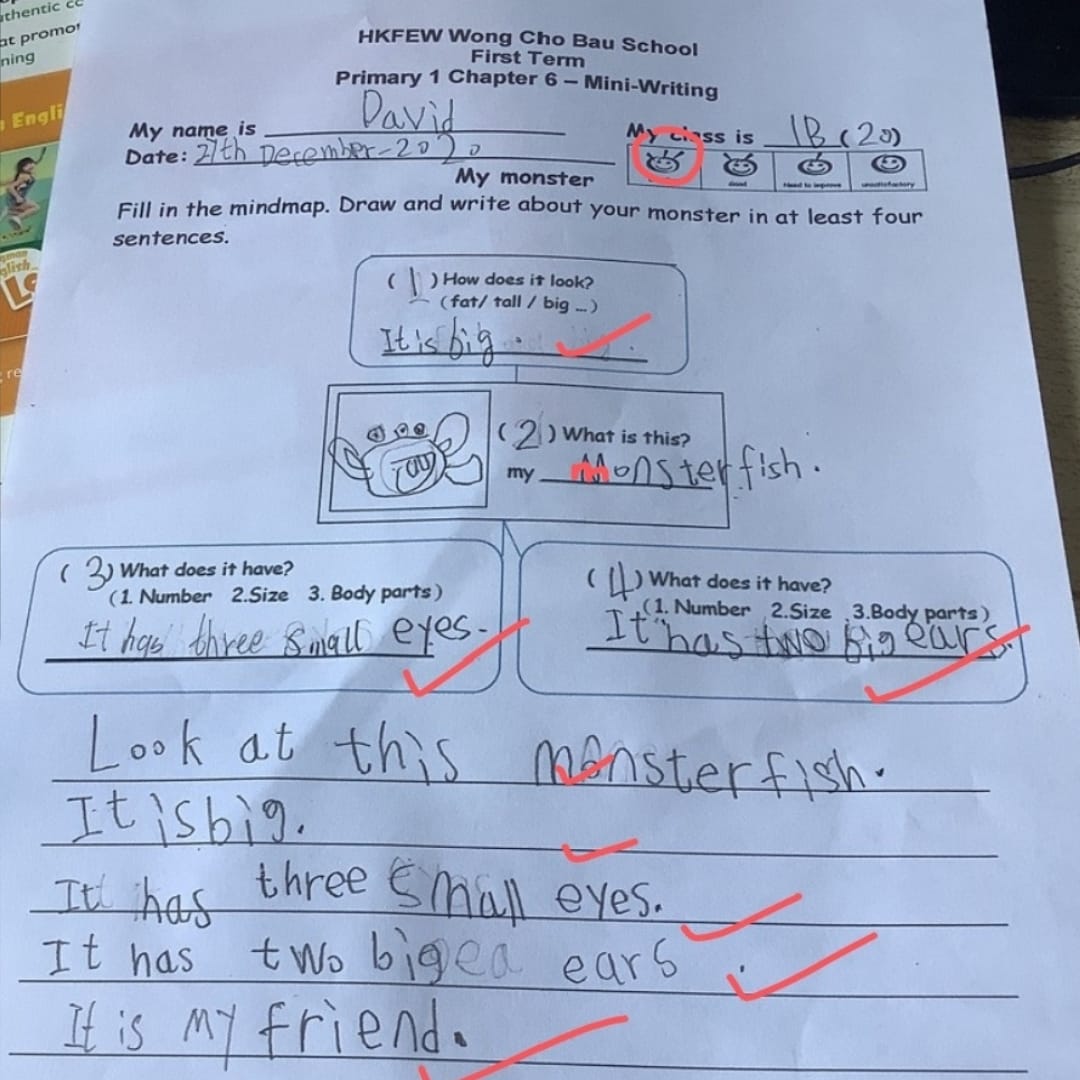 at promo
ning
Engli
HKFEW Wong Cho Bau School
First Term
Primary 1 Chapter 6 – Mini-Writing
My name is David
My class is 1B (20)
Date: 27th December-2020
Good
Need to improve
unsatisfactory
My monster
Fill in the mindmap. Draw and write about your monster in at least four
sentences.
(1) How does it look?
(fat/ tall / big ...)
It is big.
(2) What is this?
my monster fish.
(3) What does it have?
(1. Number 2.Size 3. Body parts)
It has three small eyes.
(4) What does it have?
(1. Number 2.Size 3.Body parts)
It has two big ears.
Look at this monster fish.
It is big.
It has three small eyes.
It has two big ears.
It is my friend.